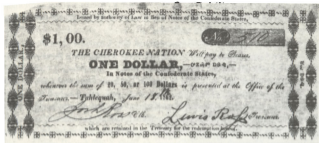 Issued by authority of Law in lieu of Notes of the Confederate States,
$1,00.
THE CHEROKEE NATION Will pay to Bearer,
ONE DOLLAR,
In Notes of the Confederate States,
whenever the sum of 20, 50, or 100 Dollars is presented at the Office of the
Treasurer.—Tahlequah, June 18, 1862.
Lewis Ross Treasurer
which are retained in the Treasury for the redemption
ONE DOLLAR,